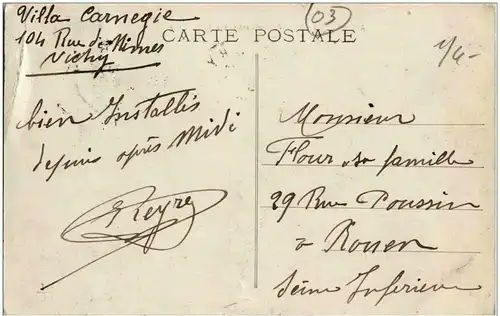 Villa Carnegie
104 Rue de Nîmes
Vichy
03
CARTE POSTALE
1/4-
bien Installés
depuis après Midi
Monsieur
Flour & sa famille
29 Rue Poussin
à Rouen
Seine Inferieure